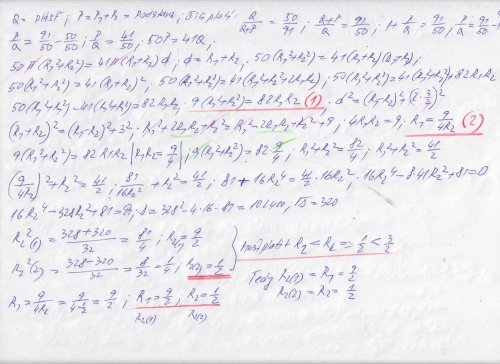 Q = plášť, P = P₁+P₂ = podstava; Q/(Q+P) = 50/91; (Q+P)/Q = 91/50; 1+P/Q = 91/50; P/Q = 91/50 -
P/Q = 91/50 - 50/50; P/Q = 41/50; 50P = 41Q,
50π(R₁²+R₂²) = 41π(R₁+R₂)d, d = R₁+R₂, 50(R₁²+R₂²) = 41(R₁+R₂)(R₁+R₂),
50(R₁²+R₂²) = 41(R₁+R₂)², 50(R₁²+R₂²) = 41(R₁²+R₂²+2R₁R₂); 50(R₁²+R₂²) = 41(R₁²+R₂²)+82R₁R₂
50(R₁²+R₂²)-41(R₁²+R₂²) = 82R₁R₂, 9(R₁²+R₂²) = 82R₁R₂ (1), d² = (R₁-R₂)²+(2·3/2)²
(R₁+R₂)² = (R₁-R₂)²+3², R₁²+2R₁R₂+R₂² = R₁²-2R₁R₂+R₂²+9, 4R₁R₂ = 9; R₁ = 9/4R₂ (2)
9(R₁²+R₂²) = 82R₁R₂ | R₁R₂ = 9/4 | 9(R₁²+R₂²) = 82 9/4; R₁²+R₂² = 82/4; R₁²+R₂² = 41/2
(9/4R₂)²+R₂² = 41/2; 81/16R₂²+R₂² = 41/2; 81+16R₂⁴ = 41/2·16R₂², 16R₂⁴-328R₂²+81=0
16R₂⁴-328R₂²+81=0, D = 328²-4·16·81 = 102400, √D = 320
R₂²(1) = (328+320)/32 = 81/4; R₂(1) = 9/2
R₂²(2) = (328-320)/32 = 8/32 = 1/4; R₂(2) = 1/2
musí platit R₂ < R₁ => 1/2 < 9/2
Tedy R₂(1) = R₁ = 9/2
R₂(2) = R₂ = 1/2
R₁ = 9/4R₂ = 9/(4·1/2) = 9/2; R₁ = 9/2, R₂ = 1/2
R₂(1) R₂(2)